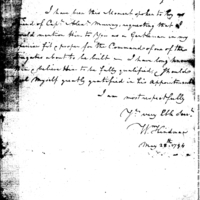 I have this Moment spoke to by a
Friend of Capt. Alexr. Murray, requesting that I
would mention Him to You as a Gentleman in my
Opinion fit & proper for the Command of one of the
Frigates about to be built in
believe Him to be fully qualified, & should
feel Myself greatly gratified in his Appointment
I am most respectfully
Yr. very Obt. Servt.
W. Hindman
May 28. 1794